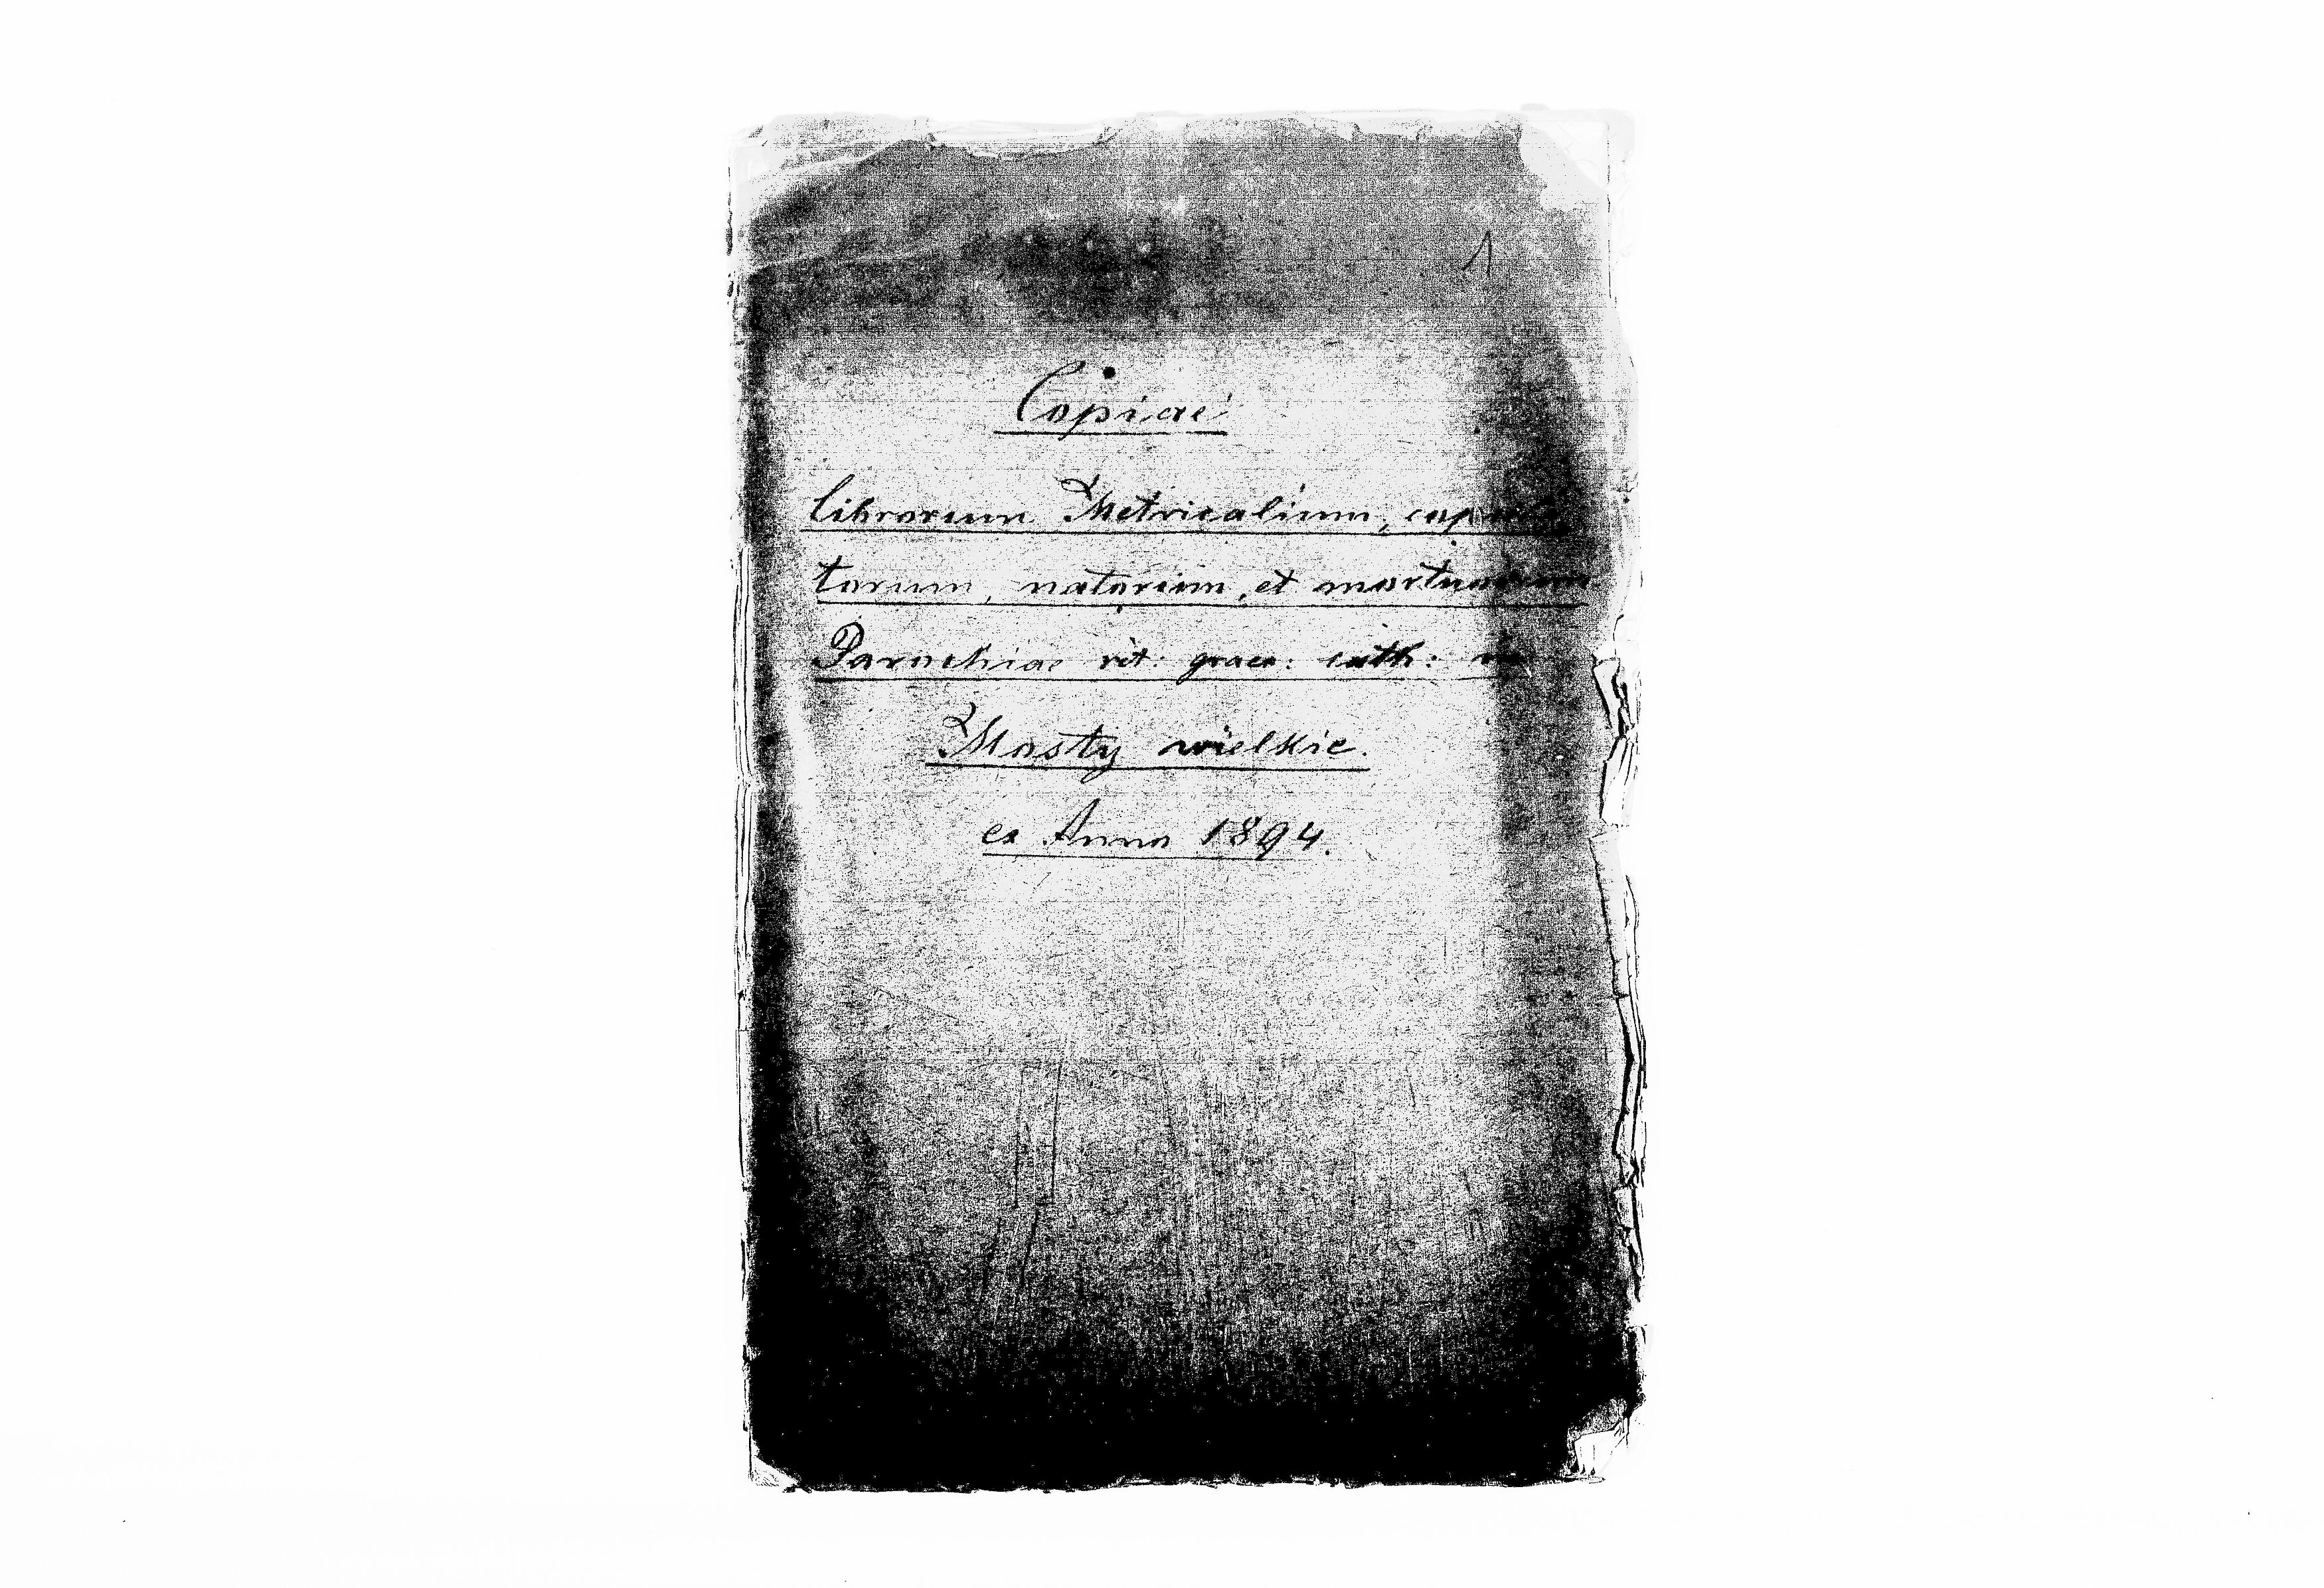 1
Copiae
librorum Metricalium, copula
torum, natorum, et mortuorum
Parochiae rit: graec: cath: in
Mosty wielkie.
ex Anno 1894.